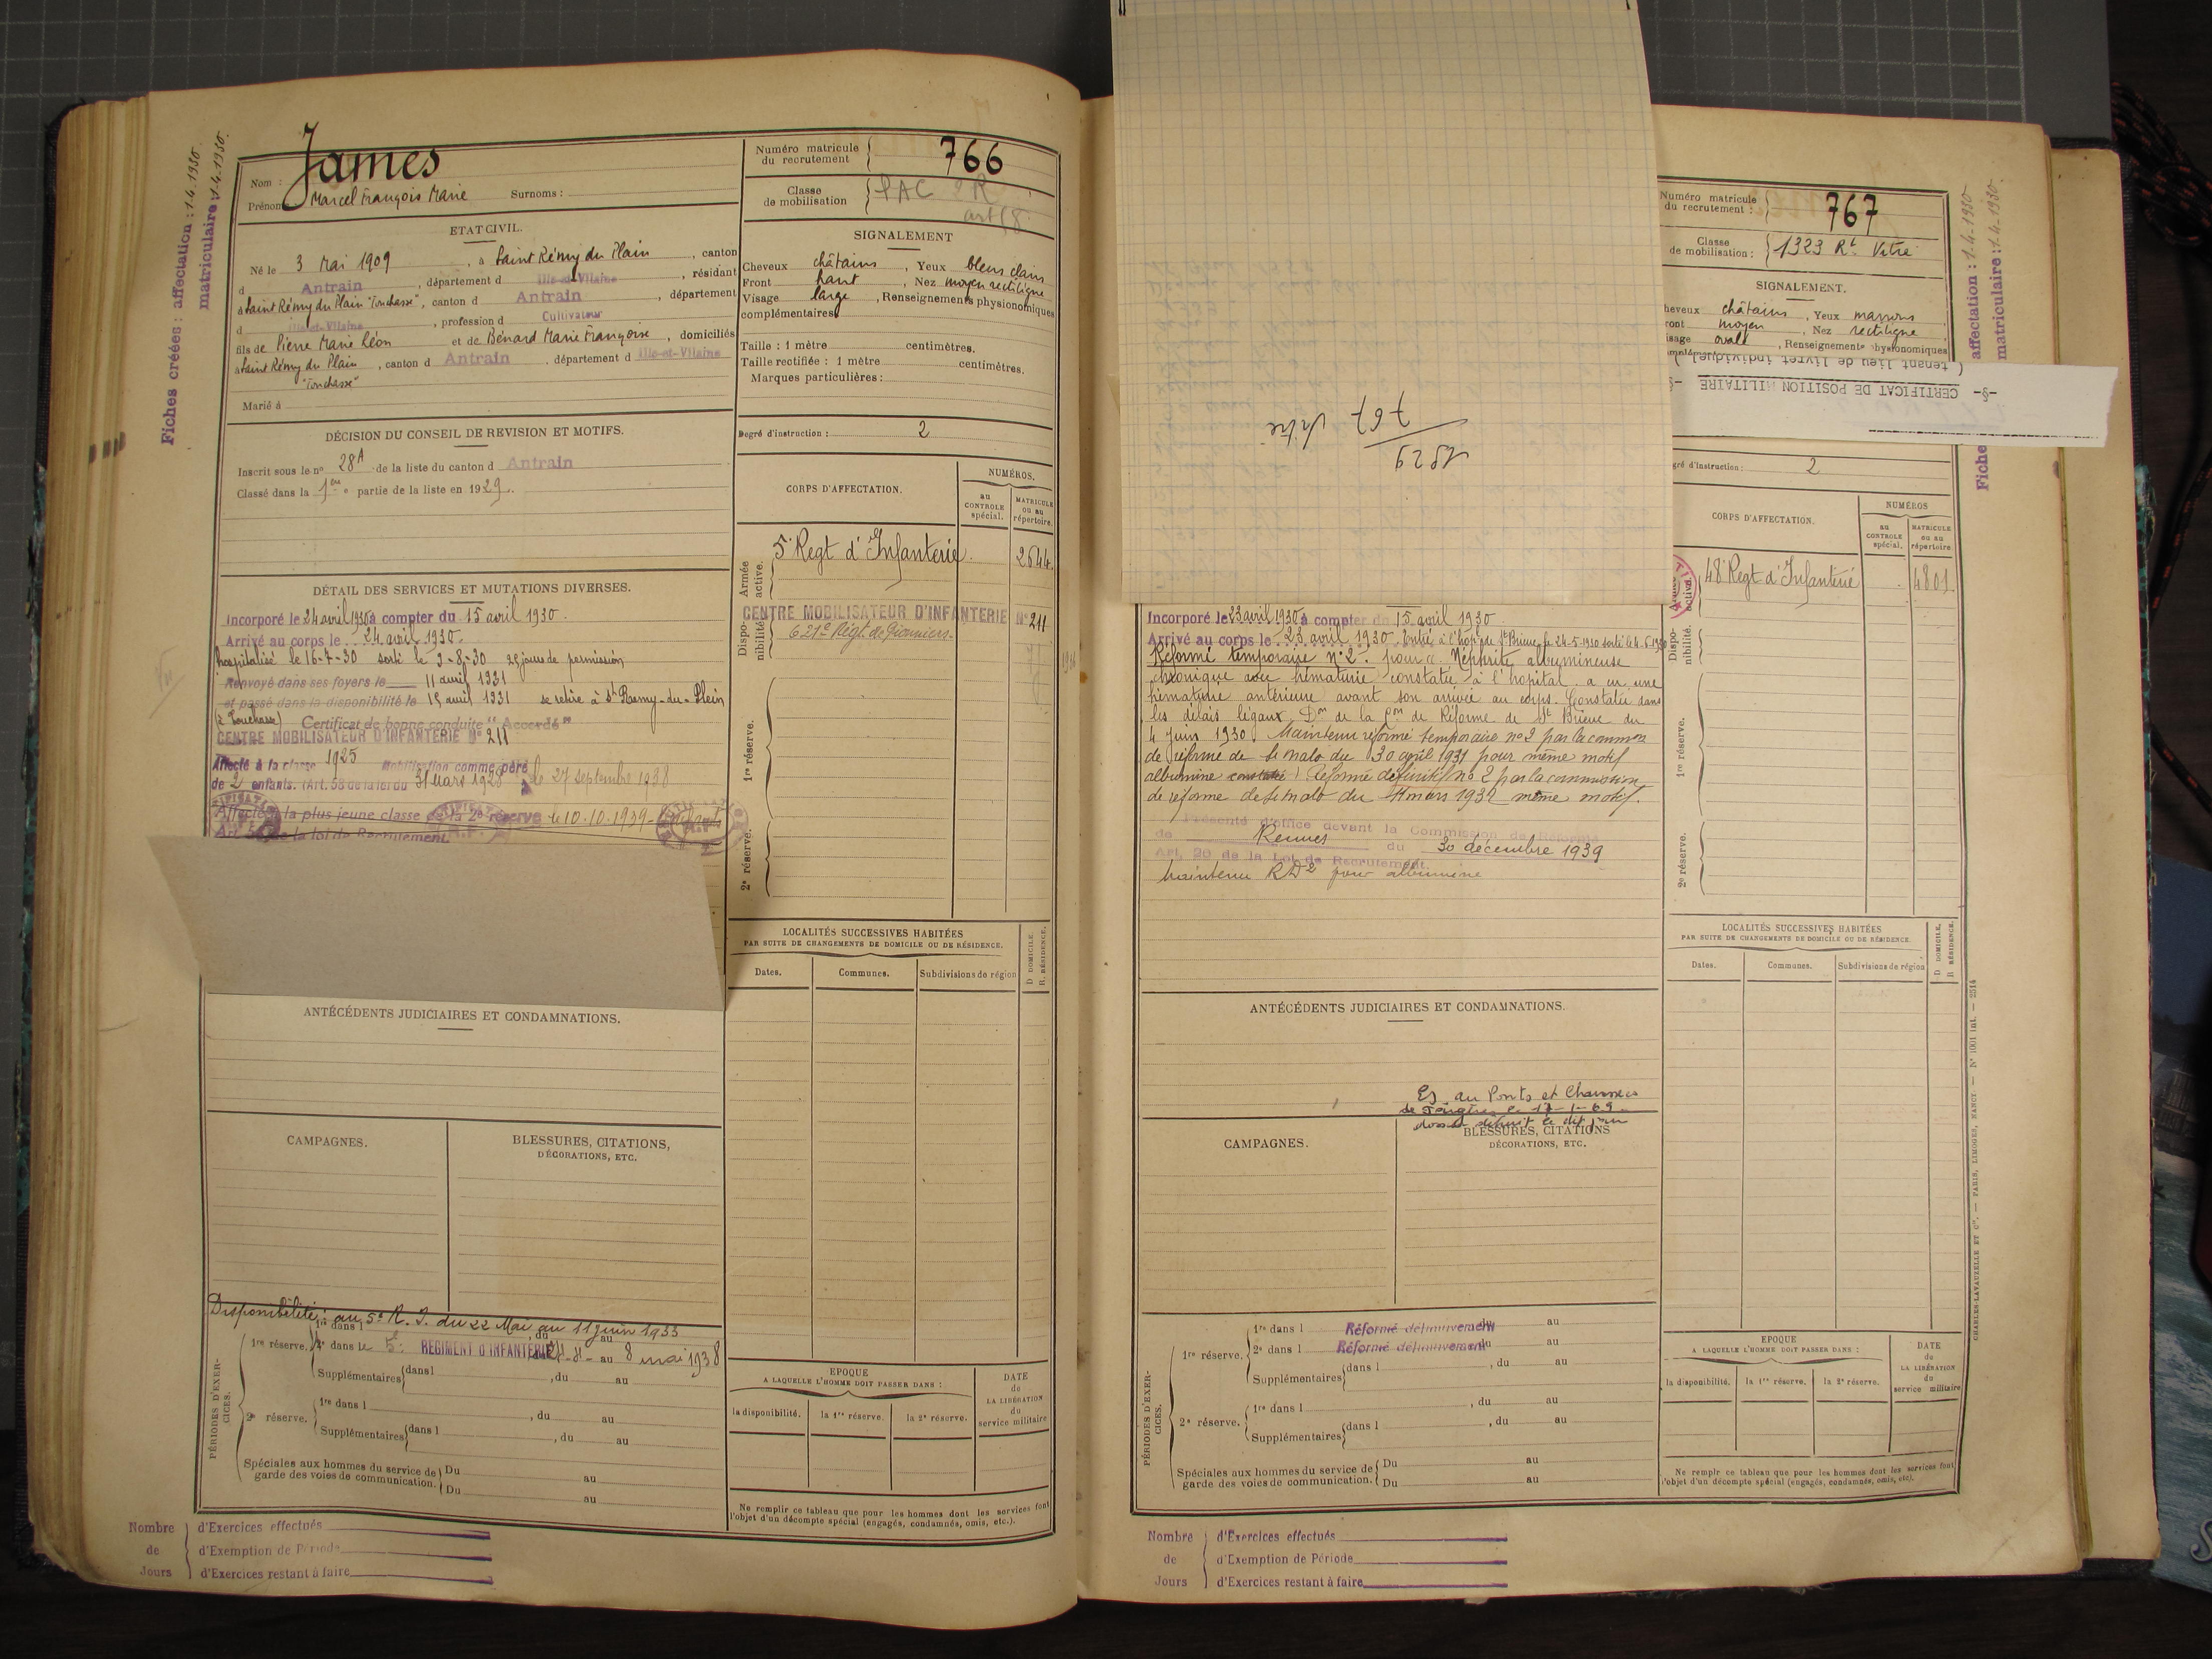 Fiches créées : affectation : 1.4.1930.
matriculaire : 1.4.1930.
James
Nom :
Prénoms Marcel François Marie Surnoms :
Numéro matricule du recrutement 766
Classe de mobilisation PAC 2R
art 58
ETAT CIVIL.
Né le 3 Mai 1909, à Saint Rémy du Plain, canton
d Antrain, département d Ille-et-Vilaine, résidant
à Saint Rémy du Plain "Touchasse", canton d Antrain, département
d Ille-et-Vilaine, profession d Cultivateur
fils de Pierre Marie Léon et de Bénard Marie Françoise, domiciliés
à Saint Rémy du Plain, canton d Antrain, département d Ille-et-Vilaine
"Touchasse"
Marié à
SIGNALEMENT
Cheveux châtains, Yeux bleus clairs
Front haut, Nez moyen rectiligne
Visage large, Renseignements physionomiques
complémentaires
Taille : 1 mètre centimètres.
Taille rectifiée : 1 mètre centimètres.
Marques particulières :
DÉCISION DU CONSEIL DE REVISION ET MOTIFS.
Inscrit sous le n° 28A de la liste du canton d Antrain
Classé dans la 1ere partie de la liste en 1929.
Degré d'instruction : 2
CORPS D'AFFECTATION.
NUMÉROS.
au CONTROLE spécial.
MATRICULE ou au répertoire.
Armée active.
5e Regt d'Infanterie. 2644
Disponibilité.
CENTRE MOBILISATEUR D'INFANTERIE N° 211
621e Régt. de Pionniers.
1re réserve.
2e réserve.
DÉTAIL DES SERVICES ET MUTATIONS DIVERSES.
Incorporé le 24 avril 1930 à compter du 15 avril 1930.
Arrivé au corps le 24 avril 1930.
hospitalisé le 16-7-30 sorti le 9-8-30 25 jours de permission
Renvoyé dans ses foyers le 11 avril 1931
et passé dans la disponibilité le 15 avril 1931 se retire à St Remy-du-Plein
(à Touchasse) Certificat de bonne conduite "Accordé"
CENTRE MOBILISATEUR D'INFANTERIE N° 211
Affecté à la classe 1925 Mobilisation comme père
de 2 enfants. (Art. 58 de la loi du 31 Mars 1928) le 27 septembre 1938
Affecté à la plus jeune classe de la 2e réserve le 10.10.1939
Art. 58 de la loi de Recrutement.
LOCALITÉS SUCCESSIVES HABITÉES
PAR SUITE DE CHANGEMENTS DE DOMICILE OU DE RÉSIDENCE.
Dates. Communes. Subdivisions de région
D DOMICILE.
R RÉSIDENCE.
ANTÉCÉDENTS JUDICIAIRES ET CONDAMNATIONS.
CAMPAGNES.
BLESSURES, CITATIONS,
DÉCORATIONS, ETC.
Disponibilité : au 5e R.I. du 22 Mai au 11 juin 1933
PÉRIODES D'EXERCICES.
1re réserve. 1re dans l , du au
2e dans le 5e REGIMENT D'INFANTERIE au 8 mai 1938
Supplémentaires dans l , du au
2e réserve. 1re dans l , du au
Supplémentaires dans l , du au
Spéciales aux hommes du service de garde des voies de communication. Du au
Du au
EPOQUE
A LAQUELLE L'HOMME DOIT PASSER DANS :
la disponibilité. la 1re réserve. la 2e réserve.
DATE de LA LIBÉRATION du service militaire
Ne remplir ce tableau que pour les hommes dont les services font
l'objet d'un décompte spécial (engagés, condamnés, omis, etc.).
Nombre de Jours
d'Exercices effectués
d'Exemption de Période
d'Exercices restant à faire
1829
767 Vitré
Numéro matricule du recrutement : 767
Classe de mobilisation : 1323 Rt Vitré
SIGNALEMENT.
heveux châtains, Yeux marrons
ront moyen, Nez rectiligne
isage ovale, Renseignements physionomiques
-§- CERTIFICAT DE POSITION MILITAIRE -§-
( tenant lieu de livret individuel )
affectation : 1.4-1930
matriculaire : 1.4-1930.
Fiche
gré d'instruction : 2
CORPS D'AFFECTATION.
NUMÉROS
au CONTROLE spécial.
MATRICULE ou au répertoire
active.
48e Regt d'Infanterie 4801
Disponibilité.
1re réserve.
2e réserve.
Incorporé le 23 avril 1930 à compter du 15 avril 1930
Arrivé au corps le 23 avril 1930. Entré à l'hop. de St Brieuc le 24-5-1930 sorti le 4-6-1930
Réformé temporaire n° 2. pour : Néphrite albumineuse
chronique avec hématurie constatée à l'hopital. a eu une
hématurie antérieure avant son arrivée au corps. Constatée dans
les délais légaux. Don de la Con de Réforme de St Brieuc du
4 Juin 1930. Maintenu réformé temporaire n° 2 par la common
de réforme de St Malo du 30 avril 1931 pour même motif
albumine constatée) Réformé définitif n° 2 par la commission
de réforme de St Malo du 11 mars 1932 même motif.
Présenté d'office devant la Commission de Réforme
de Rennes du 30 décembre 1939
Art. 20 de la Loi de Recrutement.
Maintenu RD2 pour albumine
LOCALITÉS SUCCESSIVES HABITÉES
PAR SUITE DE CHANGEMENTS DE DOMICILE OU DE RÉSIDENCE.
Dates. Communes. Subdivisions de région
D DOMICILE.
R RÉSIDENCE.
ANTÉCÉDENTS JUDICIAIRES ET CONDAMNATIONS.
Es au Ponts et Chaussées
de Fougères le 17-1-69
CAMPAGNES.
BLESSURES, CITATIONS
DÉCORATIONS, ETC.
PÉRIODES D'EXERCICES.
1re réserve. 1re dans l Réformé définitivement du au
2e dans l Réformé définitivement du au
Supplémentaires dans l , du au
2e réserve. 1re dans l , du au
Supplémentaires dans l , du au
Spéciales aux hommes du service de garde des voies de communication. Du au
Du au
EPOQUE
A LAQUELLE L'HOMME DOIT PASSER DANS :
la disponibilité. la 1re réserve. la 2e réserve.
DATE de LA LIBÉRATION du service militaire
Ne remplir ce tableau que pour les hommes dont les services font
l'objet d'un décompte spécial (engagés, condamnés, omis, etc.).
CHARLES-LAVAUZELLE ET Cie. — PARIS, LIMOGES, NANCY. — N° 1001 int. — 2514
Nombre de Jours
d'Exercices effectués
d'Exemption de Période
d'Exercices restant à faire